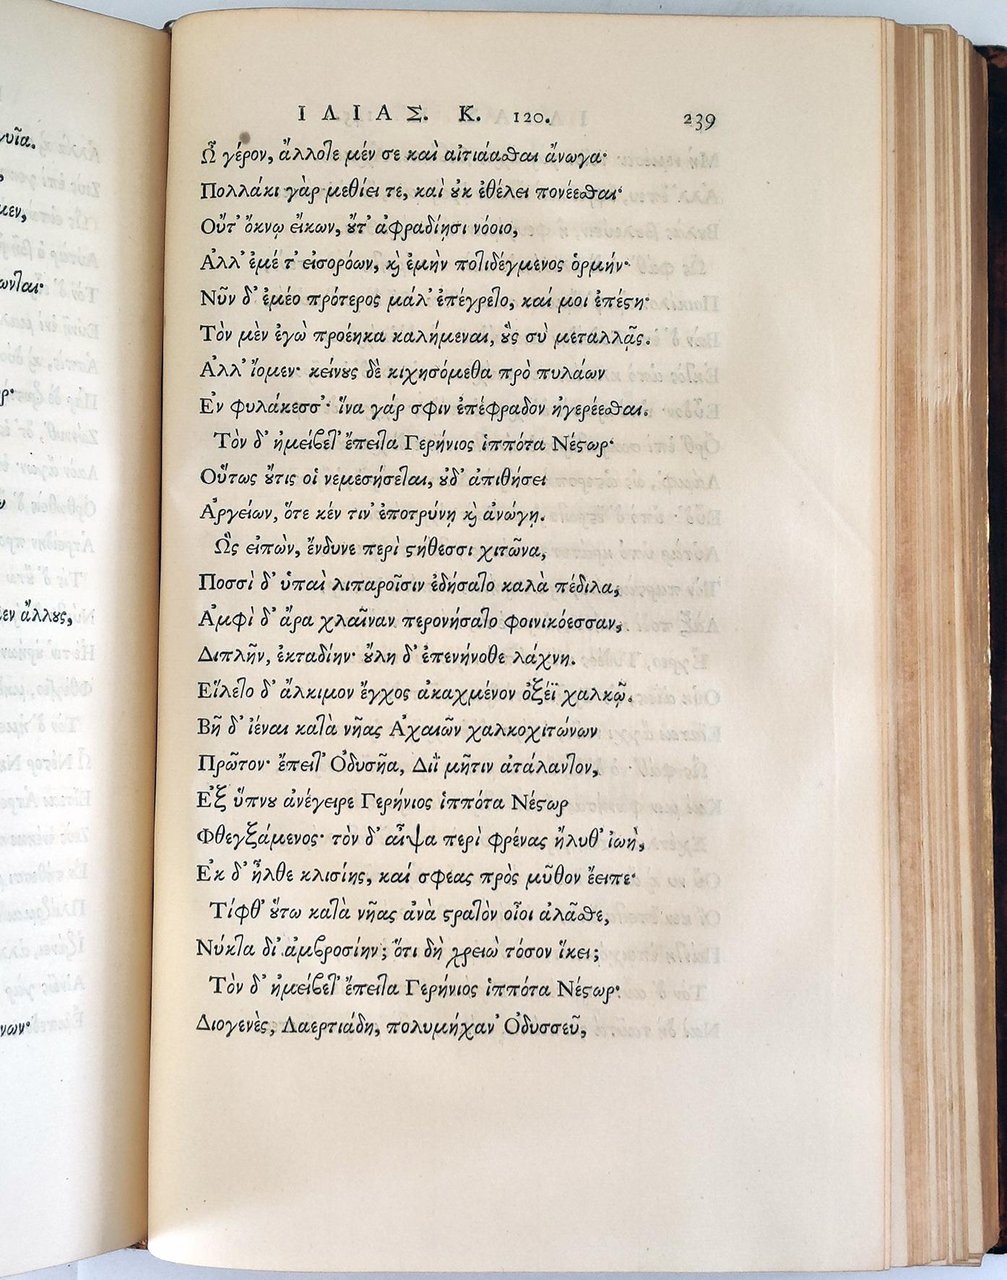 ΙΛΙΑΣ. Κ. 120. 239
Ὦ γέρον, ἄλλοτε μέν σε καὶ αἰτιάασθαι ἄνωγα·
Πολλάκι γὰρ μεθίει τε, καὶ ουκ ἐθέλει πονέεσθαι·
Οὔτ' ὄκνῳ εἴκων, ουτ' ἀφραδίῃσι νόοιο,
Ἀλλ' ἐμέ τ' εἰσορόων, καὶ ἐμὴν ποτιδέγμενος ὁρμήν·
Νῦν δ' ἐμέο πρότερος μάλ' ἐπέγρετο, καί μοι ἐπέστη·
Τὸν μὲν ἐγὼ προέηκα καλήμεναι, οὓς σὺ μεταλλᾷς.
Ἀλλ' ἴομεν· κείνους δὲ κιχησόμεθα πρὸ πυλάων
Ἐν φυλάκεσσ'· ἵνα γάρ σφιν ἐπέφραδον ἠγερέεσθαι.
Τὸν δ' ἠμείβετ' ἔπειτα Γερήνιος ἱππότα Νέστωρ·
Οὕτως οὔτις οἱ νεμεσήσεται, ουδ' ἀπιθήσει
Ἀργείων, ὅτε κέν τιν' ἐποτρύνῃ καὶ ἀνώγῃ.
Ὣς εἰπὼν, ἔνδυνε περὶ στήθεσσι χιτῶνα,
Ποσσὶ δ' ὑπαὶ λιπαροῖσιν ἐδήσατο καλὰ πέδιλα,
Ἀμφὶ δ' ἄρα χλαῖναν περονήσατο φοινικόεσσαν,
Διπλῆν, ἐκταδίην· οὔλη δ' ἐπενήνοθε λάχνη.
Εἵλετο δ' ἄλκιμον ἔγχος ἀκαχμένον ὀξέϊ χαλκῷ.
Βῆ δ' ἰέναι κατὰ νῆας Ἀχαιῶν χαλκοχιτώνων
Πρῶτον· ἔπειτ' Ὀδυσῆα, Διῒ μῆτιν ἀτάλαντον,
Ἐξ ὕπνου ἀνέγειρε Γερήνιος ἱππότα Νέστωρ
Φθεγξάμενος· τὸν δ' αἶψα περὶ φρένας ἤλυθ' ἰωὴ,
Ἐκ δ' ἦλθε κλισίης, καί σφεας πρὸς μῦθον ἔειπε·
Τίφθ' οὕτω κατὰ νῆας ἀνὰ στρατὸν οἶοι ἀλᾶσθε,
Νύκτα δι' ἀμβροσίην; ὅτι δὴ χρειὼ τόσον ἵκει;
Τὸν δ' ἠμείβετ' ἔπειτα Γερήνιος ἱππότα Νέστωρ·
Διογενὲς, Λαερτιάδη, πολυμήχαν' Ὀδυσσεῦ,